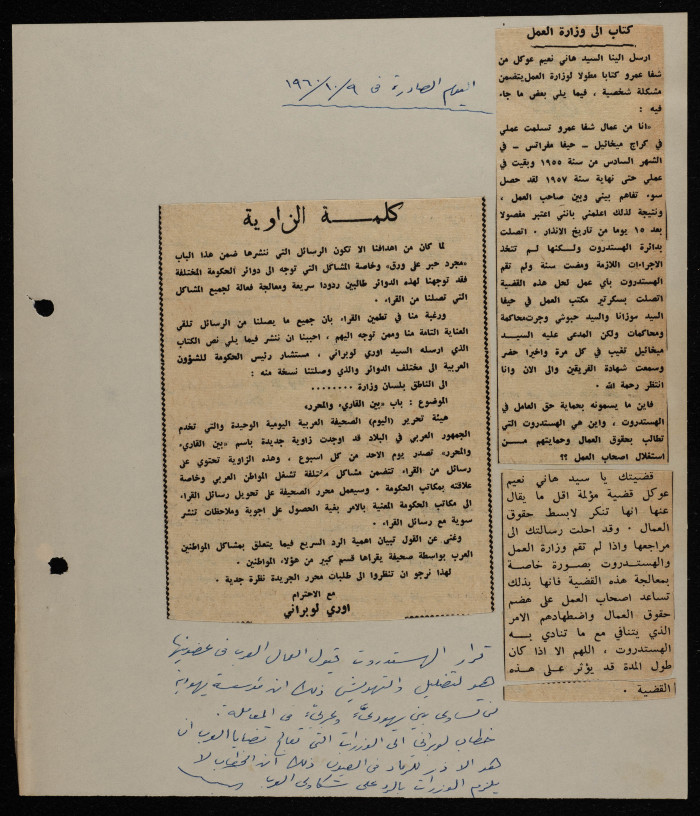 كتاب الى وزارة العمل
ارسل الينا السيد هاني نعيم عوكل من
شفا عمرو كتابا مطولا لوزارة العمل يتضمن
مشكلة شخصية ، فيما يلي بعض ما جاء
فيه :
«انا من عمال شفا عمرو تسلمت عملي
في كراج ميخائيل ـ حيفا مفراتس ـ في
الشهر السادس من سنة ١٩٥٥ وبقيت في
عملي حتى نهاية سنة ١٩٥٧ لقد حصل
سوء تفاهم بيني وبين صاحب العمل ،
ونتيجة لذلك اعلمني بانني اعتبر مفصولا
بعد ١٥ يوما من تاريخ الانذار . اتصلت
بدائرة الهستدروت ولكنها لم تتخذ
الاجراءات اللازمة ومضت سنة ولم تقم
الهستدروت باي عمل لحل هذه القضية
اتصلت بسكرتير مكتب العمل في حيفا
السيد سوزانا والسيد حيوشي وجرت محاكمة
ومحاكمات ولكن المدعى عليه السيد
ميخائيل تغيب في كل مرة واخيرا حضر
وسمعت شهادة الفريقين والى الان وانا
انتظر رحمة الله .
فاين ما يسمونه بحماية حق العامل في
الهستدروت ، واين هي الهستدروت التي
تطالب بحقوق العمال وحمايتهم من
استغلال اصحاب العمل ؟؟
قضيتك يا سيد هاني نعيم
عوكل قضية مؤلمة اقل ما يقال
عنها انها تنكر لابسط حقوق
العمال . وقد احلت رسالتك الى
مراجعها واذا لم تقم وزارة العمل
والهستدروت بصورة خاصة
بمعالجة هذه القضية فانها بذلك
تساعد اصحاب العمل على هضم
حقوق العمال واضطهادهم الامر
الذي يتنافي مع ما تنادي به
الهستدروت ، اللهم الا اذا كان
طول المدة قد يؤثر على هذه
القضية .
اليوم الصادرة في ١٩٦٠/١٠/٩
كلمة الزاوية
لما كان من اهدافنا الا تكون الرسائل التي ننشرها ضمن هذا الباب
«مجرد حبر على ورق» وخاصة المشاكل التي توجه الى دوائر الحكومة المختلفة
فقد توجهنا لهذه الدوائر طالبين ردودا سريعة ومعالجة فعالة لجميع المشاكل
التي تصلنا من القراء .
ورغبة منا في تطمين القراء بان جميع ما يصلنا من الرسائل تلقى
العناية التامة منا وممن توجه اليهم ، احببنا ان ننشر فيما يلي نص الكتاب
الذي ارسله السيد اوري لوبراني ، مستشار رئيس الحكومة للشؤون
العربية الى مختلف الدوائر والذي وصلتنا نسخة منه :
الى الناطق بلسان وزارة ........
الموضوع : باب «بين القاريء والمحرر»
هيئة تحرير (اليوم) الصحيفة العربية اليومية الوحيدة والتي تخدم
الجمهور العربي في البلاد قد اوجدت زاوية جديدة باسم «بين القاريء
والمحرر» تصدر يوم الاحد من كل اسبوع ، وهذه الزاوية تحتوي على
رسائل من القراء تتضمن مشاكل مختلفة تشغل المواطن العربي وخاصة
علاقته بمكاتب الحكومة . وسيعمل محرر الصحيفة على تحويل رسائل القراء
الى مكاتب الحكومة المعنية بالامر بغية الحصول على اجوبة وملاحظات تنشر
سوية مع رسائل القراء .
وغنى عن القول تبيان اهمية الرد السريع فيما يتعلق بمشاكل المواطنين
العرب بواسطة صحيفة يقراها قسم كبير من هؤلاء المواطنين .
لهذا نرجو ان تنظروا الى طلبات محرر الجريدة نظرة جدية .
مع الاحترام
اوري لوبراني
قرار الهستدروت قبول العمال العرب في عضويتها
هو لتضليل والتهويش ذلك ان مؤسسة يهودية
لن تساوى بين يهوديّ وعربيّ في المعاملة .
خطاب لوبراني الى الوزرات التي تعالج قضايا العرب ان
هو الا ذر للرماد في العيون ذلك ان الخطاب لا
يلزم الوزرات بالرد على شكاوى العرب